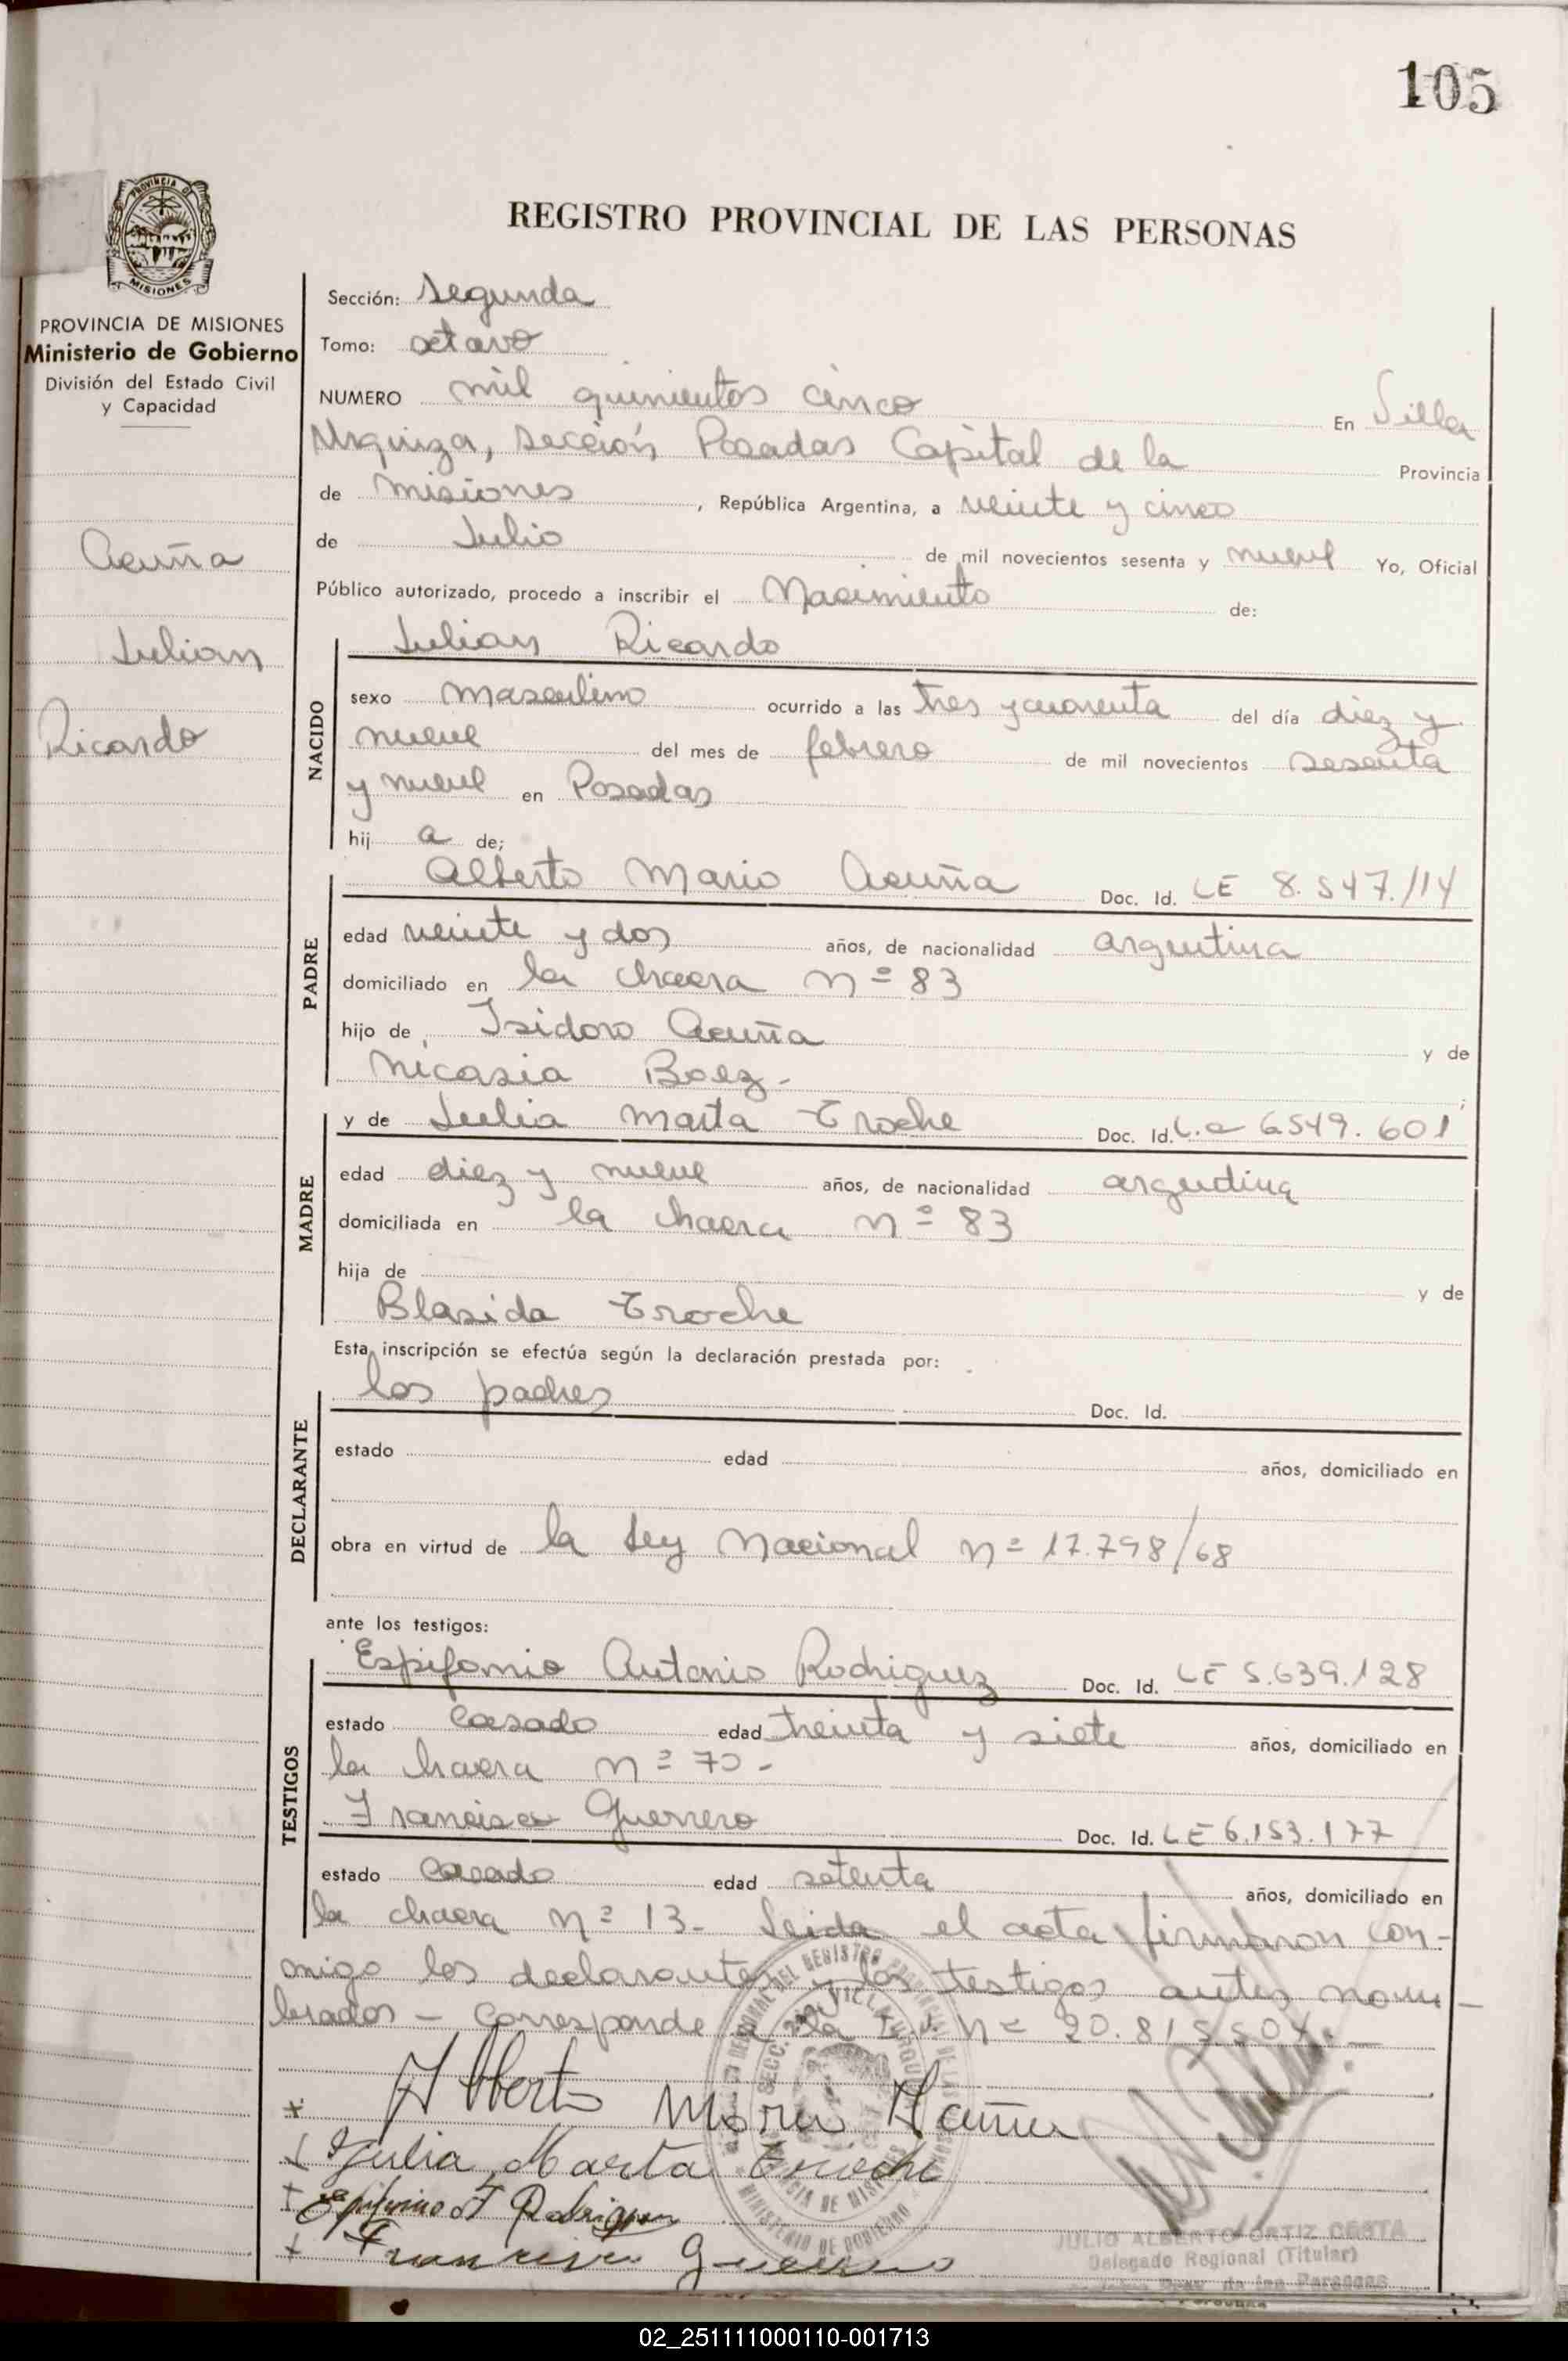 105
PROVINCIA DE
MISIONES
REGISTRO PROVINCIAL DE LAS PERSONAS
PROVINCIA DE MISIONES
Ministerio de Gobierno
División del Estado Civil
y Capacidad
Acuña
Julian
Ricardo
Sección: Segunda
Tomo: octavo
NUMERO mil quinientos cinco En Villa
Urquiza, sección Posadas Capital de la Provincia
de misiones, República Argentina, a veinte y cinco
de Julio de mil novecientos sesenta y nueve Yo, Oficial
Público autorizado, procedo a inscribir el Nacimiento de:
NACIDO
Julian Ricardo
sexo masculino ocurrido a las tres y cuarenta del día diez y
nueve del mes de febrero de mil novecientos sesenta
y nueve en Posadas
hij a de;
PADRE
Alberto Mario Acuña Doc. Id. LE 8.547.114
edad veinte y dos años, de nacionalidad argentina
domiciliado en la chacra nº 83
hijo de Isidoro Acuña y de
Nicasia Baez- ;
MADRE
y de Julia Marta Troche Doc. Id. L.C 6549.601
edad diez y nueve años, de nacionalidad argentina
domiciliada en la chacra nº 83
hija de y de
Blasida Troche
Esta inscripción se efectúa según la declaración prestada por:
DECLARANTE
los padres Doc. Id.
estado edad años, domiciliado en
obra en virtud de la Ley Nacional nº 17.798/68
ante los testigos:
TESTIGOS
Espifamio Antonio Rodriguez Doc. Id. LE 5.639.128
estado casado edad treinta y siete años, domiciliado en
la chacra nº 70-
Francisco Guerrero Doc. Id. LE 6.153.177
estado casado edad setenta años, domiciliado en
la chacra nº 13- Leida el acta firmaron con-
migo los declarantes y los testigos antes nom-
brados - Corresponde a la nº 20.815.504.-
Alberto Mario Acuña
Julia Marta Troche
Rodriguez
Francisco Guerrero
JULIO ALBERTO ORTIZ COSTA
Delegado Regional (Titular)
02_251111000110-001713